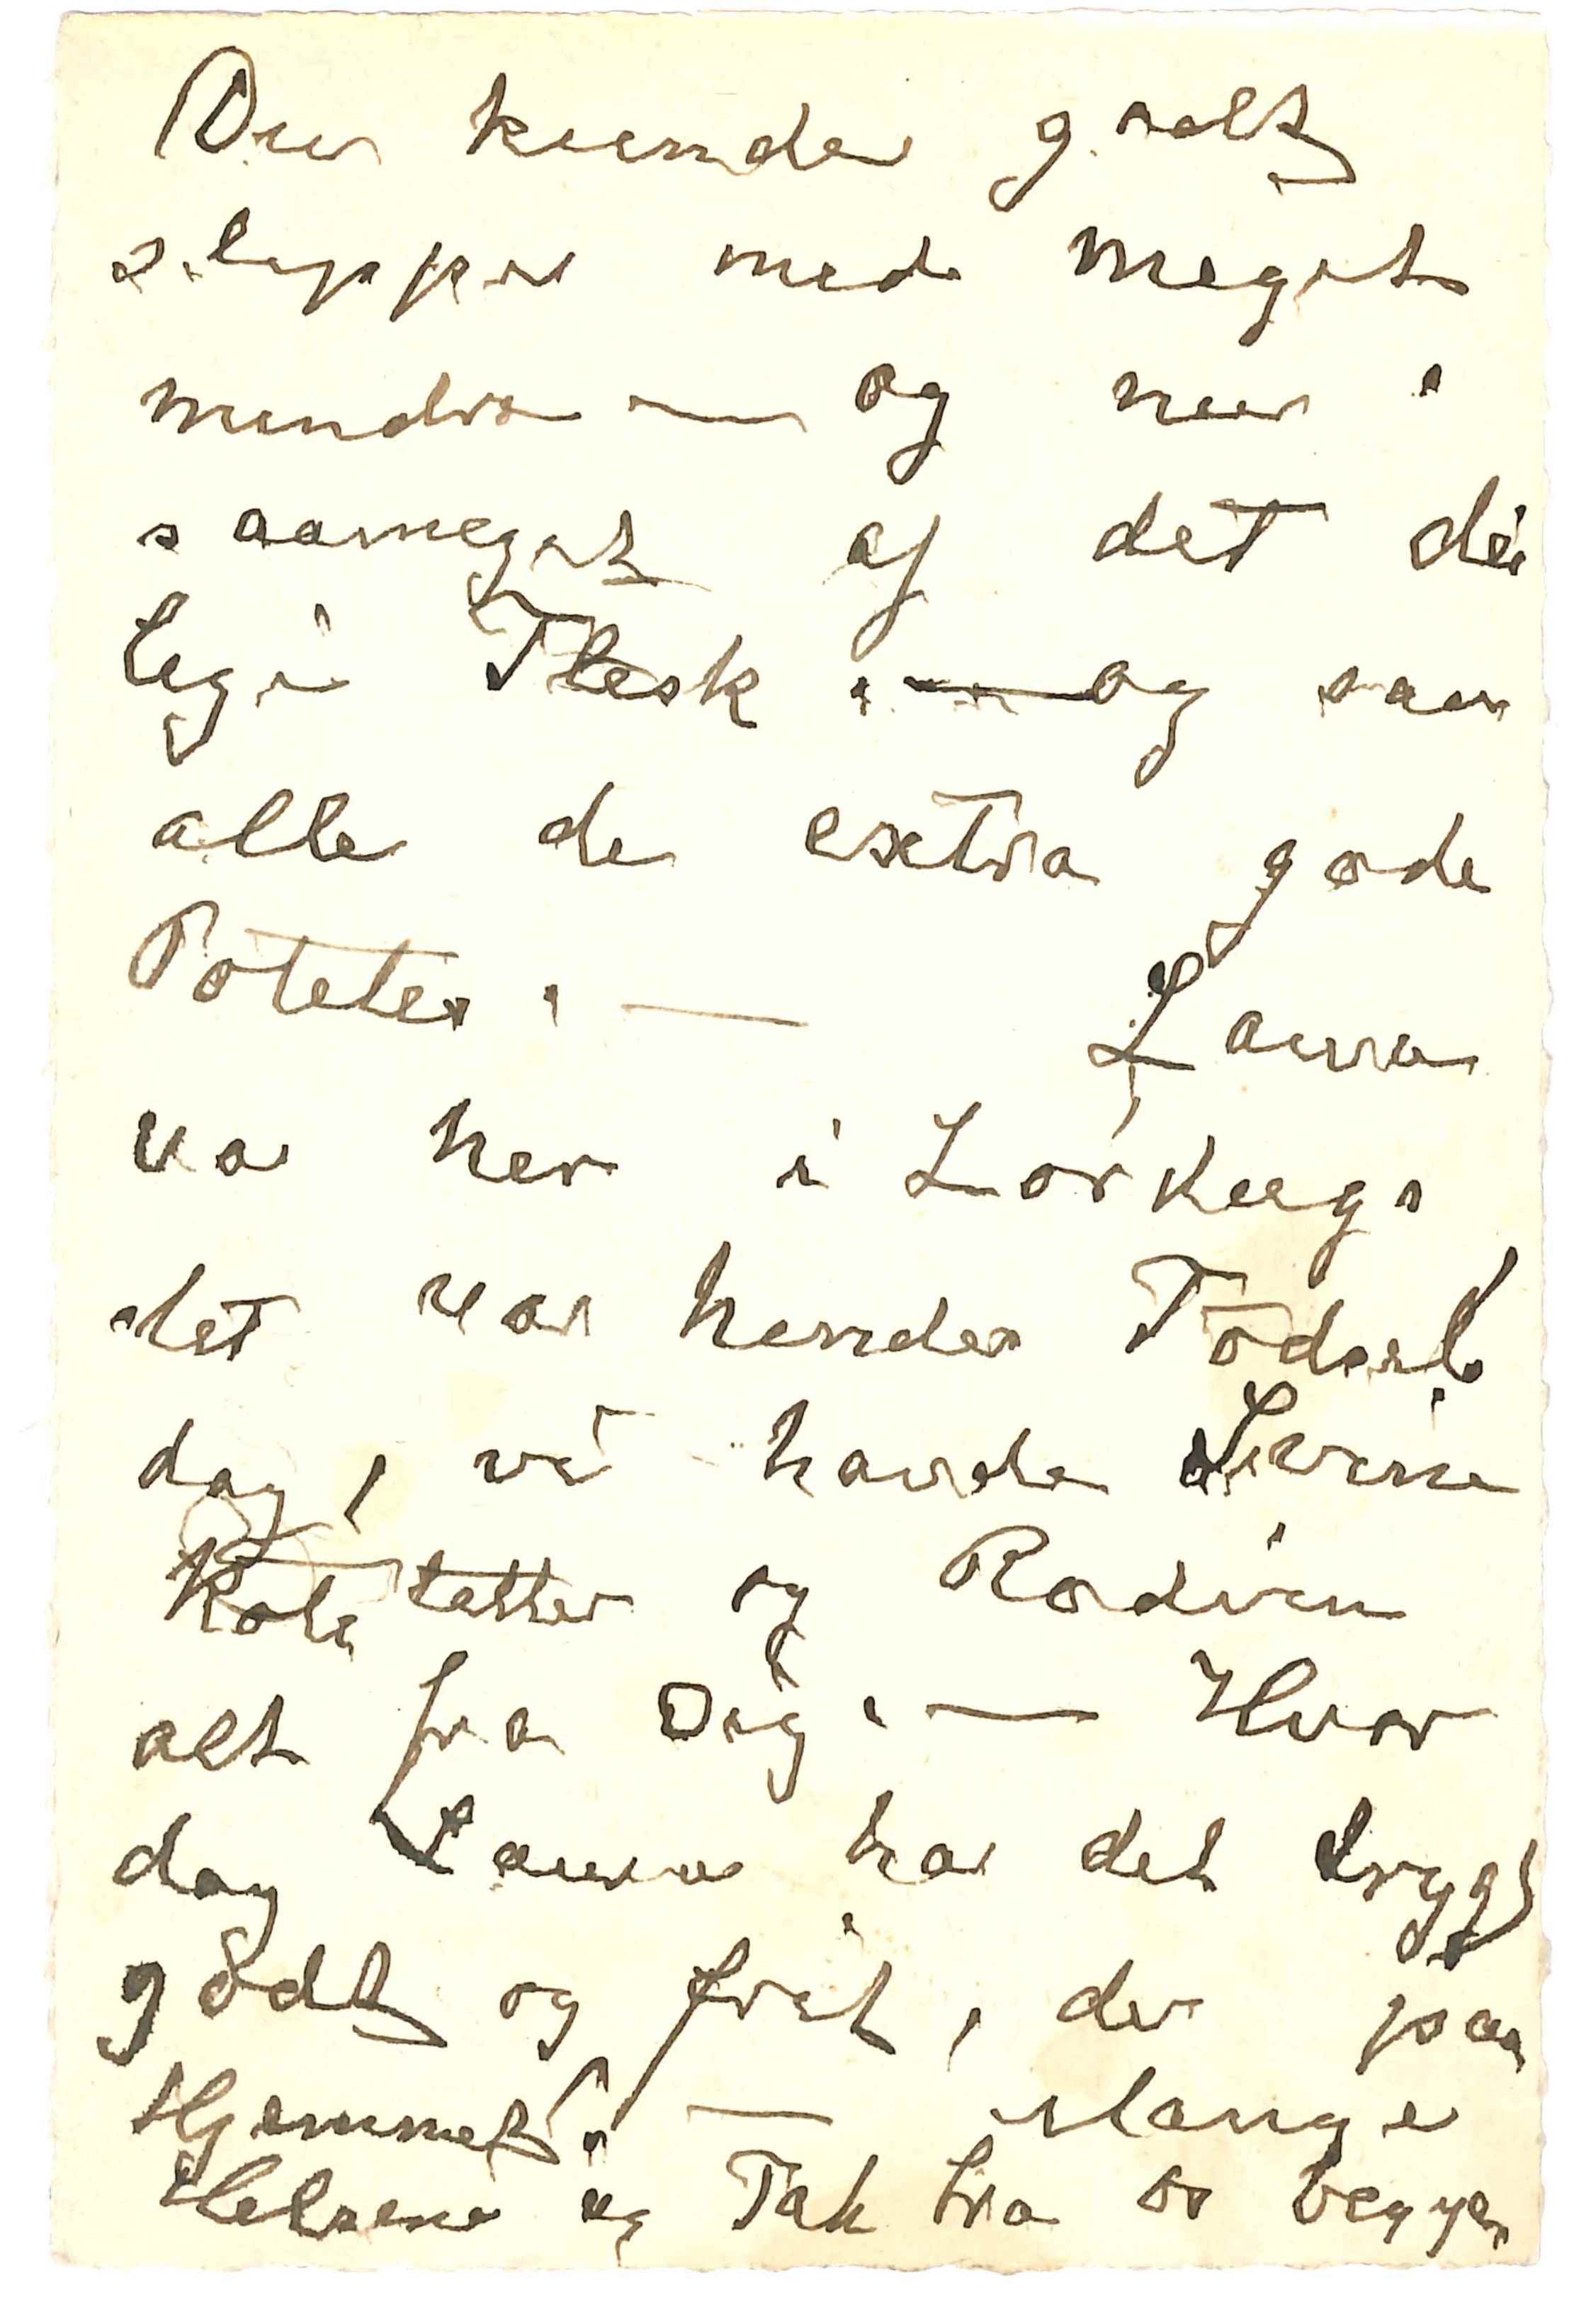 Du kunde godt
slippe med meget
mindre — og nu
saameget af det dei
lige Flesk. — og saa
alle de extra gode
Poteter. — Laura
va her i Lørdags
det var hendes Fødsels
dag, vi havde Svine
Kotetetter og
alt fra Dig. — Hvor
dag Laura har det trygt
godt og frit, der paa
Hjemmet. — Mange
Helsene og Tak fra os begge